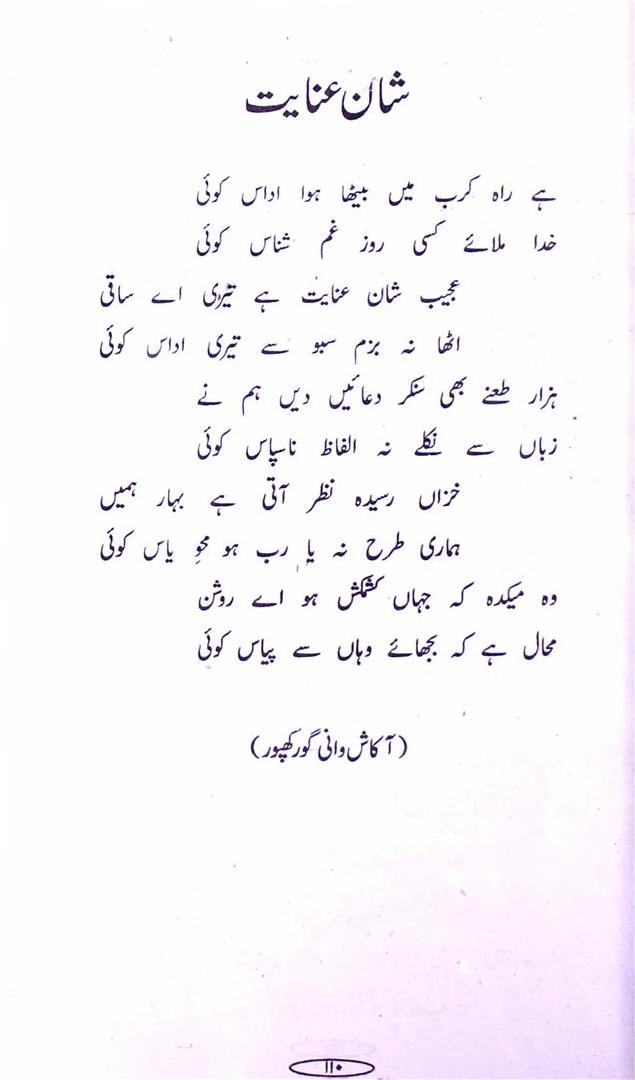 شان عنایت
ہے راہ کرب میں بیٹھا ہوا اداس کوئی
خدا ملائے کسی روز غم شناس کوئی
عجیب شان عنایت ہے تیری اے ساقی
اٹھا نہ بزم سبو سے تیری اداس کوئی
ہزار طعنے بھی سنکر دعائیں دیں ہم نے
زباں سے نکلے نہ الفاظ ناسپاس کوئی
خزاں رسیدہ نظر آتی ہے بہار ہمیں
ہماری طرح نہ یا رب ہو محوِ یاس کوئی
وہ میکدہ کہ جہاں کشمکش ہو اے روشن
محال ہے کہ بجھائے وہاں سے پیاس کوئی
(آکاش وانی گورکھپور)
۱۱۰